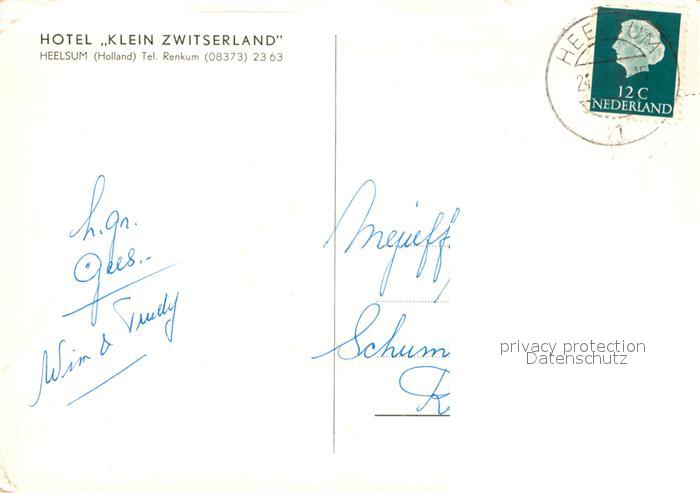 HOTEL „KLEIN ZWITSERLAND"
HEELSUM (Holland) Tel. Renkum (08373) 23 63
HEELSUM
12 C
NEDERLAND
h. gr.
Wim & Trudy
Mejuff.
Schum
R
privacy protection
Datenschutz